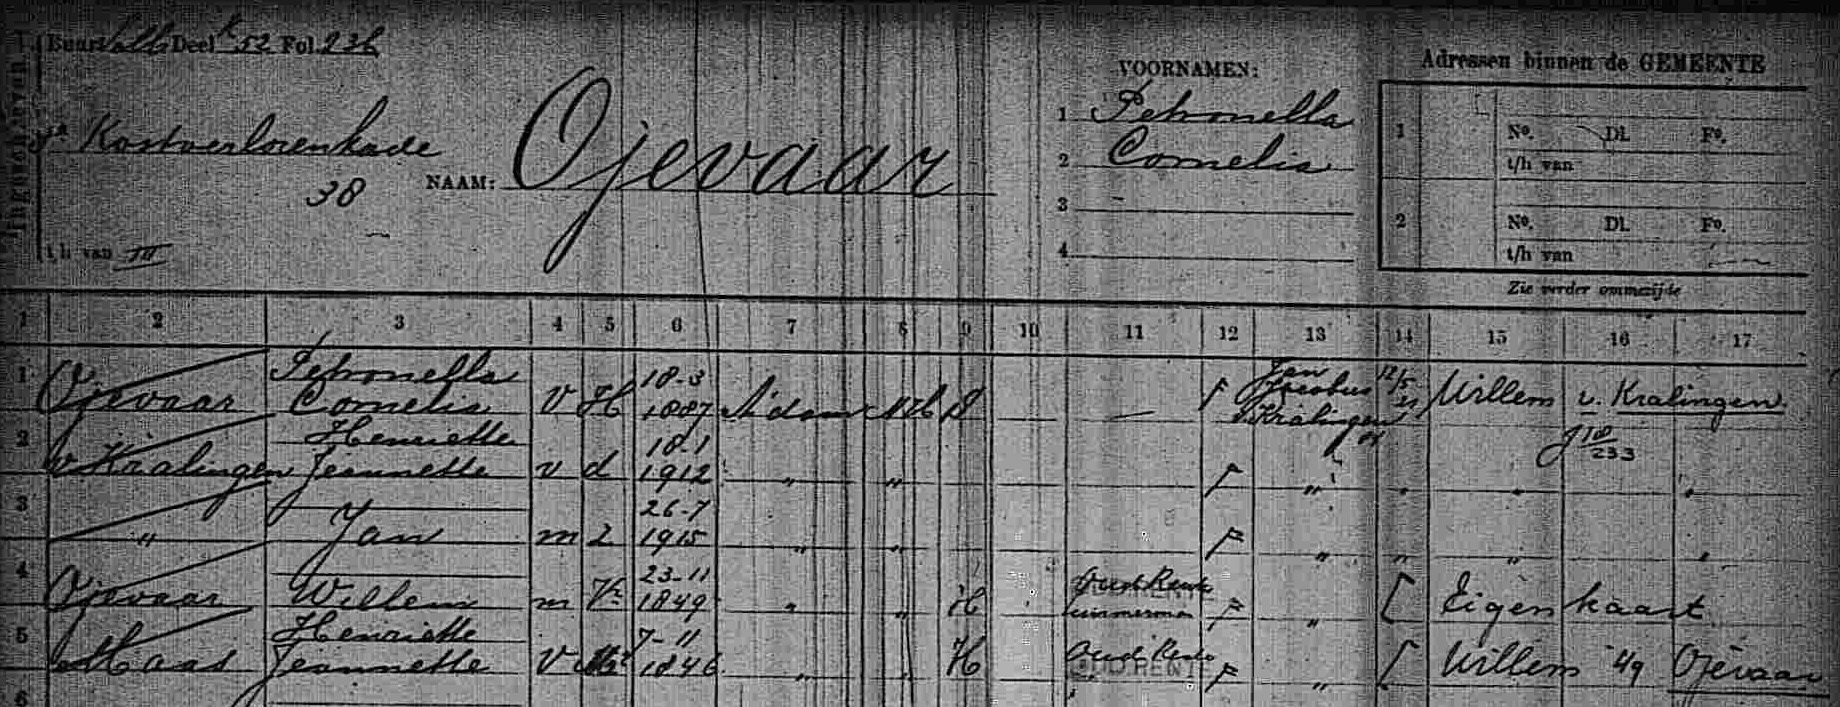 Deel 52 Fol. 236
VOORNAMEN:
Adressen binnen de GEMEENTE
Kostverlorenkade
38
NAAM: Ojevaar
1 Petronella
2 Cornelia
3
4
1 No. Dl. Fo.
t/h van
2 No. Dl. Fo.
t/h van
t/h van III
Zie verder ommezijde
1 2 3 4 5 6 7 8 9 10 11 12 13 14 15 16 17
1 Ojevaar Petronella Cornelia V H 18-3 1887 A'dam NH Jan Jacobus v Kralingen 12/5 Willem v. Kralingen
2 v Kralingen Henriette Jeannette v d 18-1 1912 " " " " " " "
3 " Jan m Z 26-7 1915 " " " " " "
4 Ojevaar Willem m Vr 23-11 1849 " " H timmerman " Eigen kaart
5 Maas Henriette Jeannette V 7-11 1846 " " H " Willem Ojevaar
6